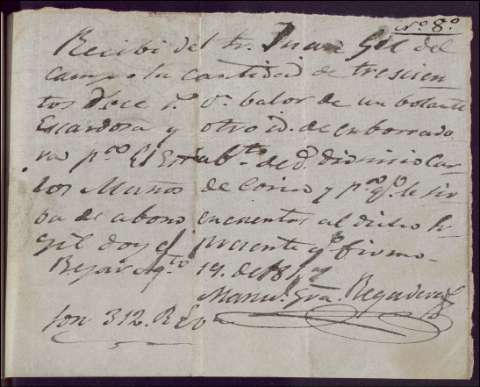 Nº 8º
Recibi del Sr. Juan Gil del
campo la cantidad de trescien
tos doce rˢ vⁿ balor de un bolante
Escardosa y otro id. de enborrado
ra pᵃ El Estabᵗᵒ de Dⁿ Dionicio Car
los Muños de Coria y pᵃ qᵉ le sir
ba de abono encuentas al dicho Sʳ
Gil doy el precente qᵉ firmo
Bejar Agᵗᵒ 19. de
Manuˡ Gra. Regadera
son 312. Rs vn